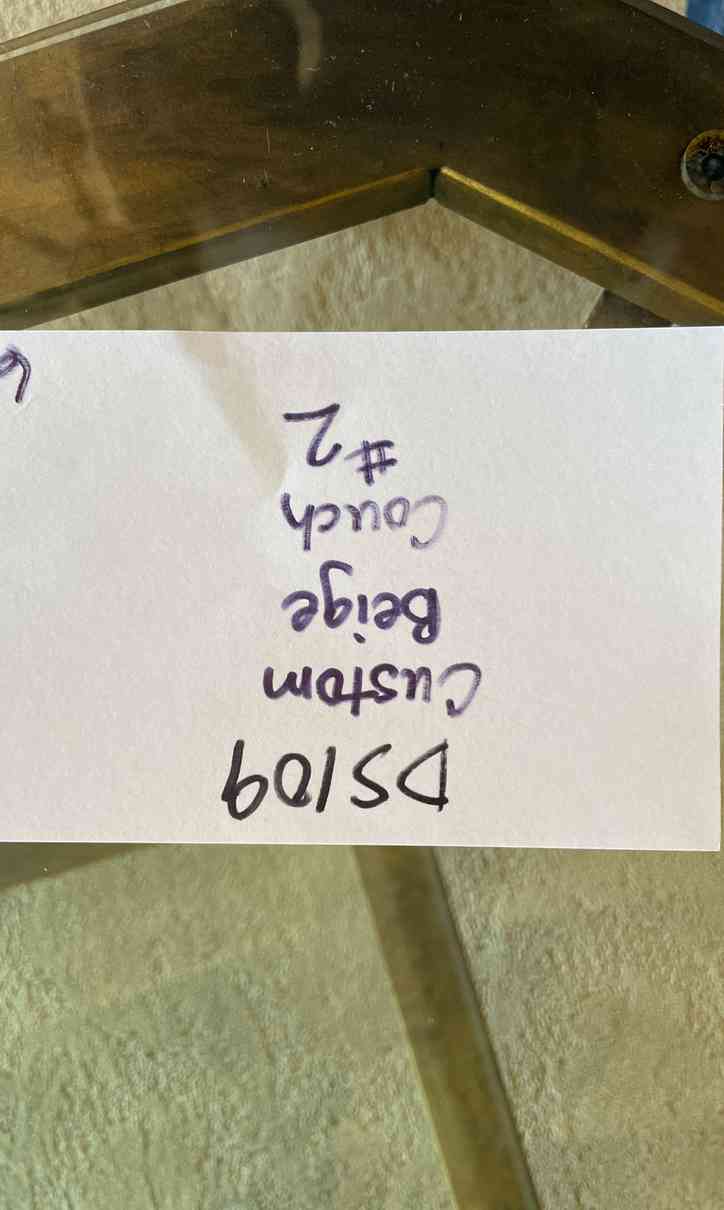 DS109
Custom
Beige
Couch
#2